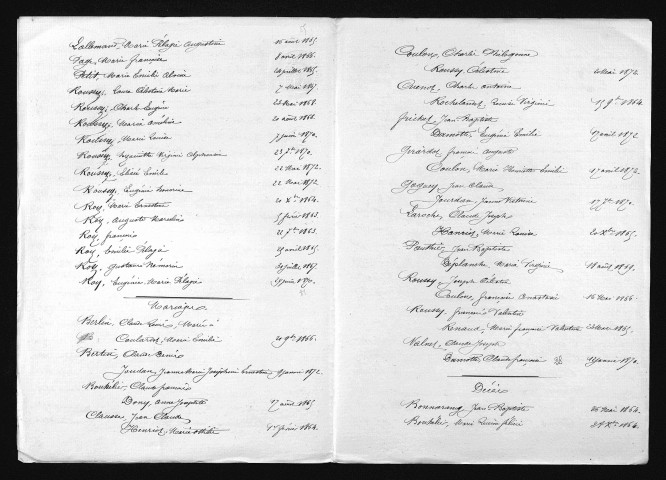 Lallemand, Marie Pélagie Augustine 16 aout 1865.
Page, Marie françoise 8 avril 1866.
Petit, Marie Emilie 1865.
Roussy, Célestine Marie 7 Mai 1867.
Roussy, Charles Eugène 22 Mai 1868.
Roussy, Marie 20 aout 1868.
Roussy, Marie Louise 1870.
Roussey, Hyacinthe Virginie Alphonsine 1870.
Roussy, Emile 22 Mai 1872.
Roussey, Eugénie 22 Mai 1872.
Roy, Marie Ernestine 20 Xbre 1864.
Roy, Auguste Marcelin 5 1863.
Roy, françois 22 7bre 1863.
Roy, Emilie Pélagie avril 1865.
Roy, Gustave Némorin juillet 1867.
Roy, Eugénie Marie Pélagie 1870.
Mariages
Berlin, Claude Louis, Marié à
Coulardot, Marie Emilie 29 9bre 1866.
Bertin, Claude Denis
Jourdan, Jeanne Marie Joséphine Ernestine 1872.
Bouhélier, Claude francois
Bony, Anne Josephte 17 aout 1865.
Clausse, Jean Claude
Henriot, Marie 1er février 1864.
Coulon, Charles Philogone
Roussey, Célestine Mai 1872.
Cuenot, Charles antoine
Rochelandet, Louise Virginie 15 9bre 1864.
Guichot, Jean Baptiste
Damotte, Eugénie Emilie 17 avril 1872
Girardot, francois auguste
Coulon, Marie Henriette Emilie 17 avril 1872.
Goguey, Jean Claude
Jourdan, Jeanne Victorine 17 7bre 1870.
Laroche, Claude Joseph
Henriot, Marie Louise 20 Xbre 1865.
Pauthier, Jean Baptiste
Déplanche, Marie Virginie 18 1869.
Roussy, Joseph Célestin
Coulon, françoise Anastasie 16 Mai 1866.
Roussy, francois Valentin
Renaud, Marie françoise 1865.
Valnet, Claude Joseph
Damotte, Claude françoise janvier 1870.
Décès
Bonnorang, Jean Baptiste 26 Mai 1864.
Bouhélier, Marie Louise 21 Xbre 1864.